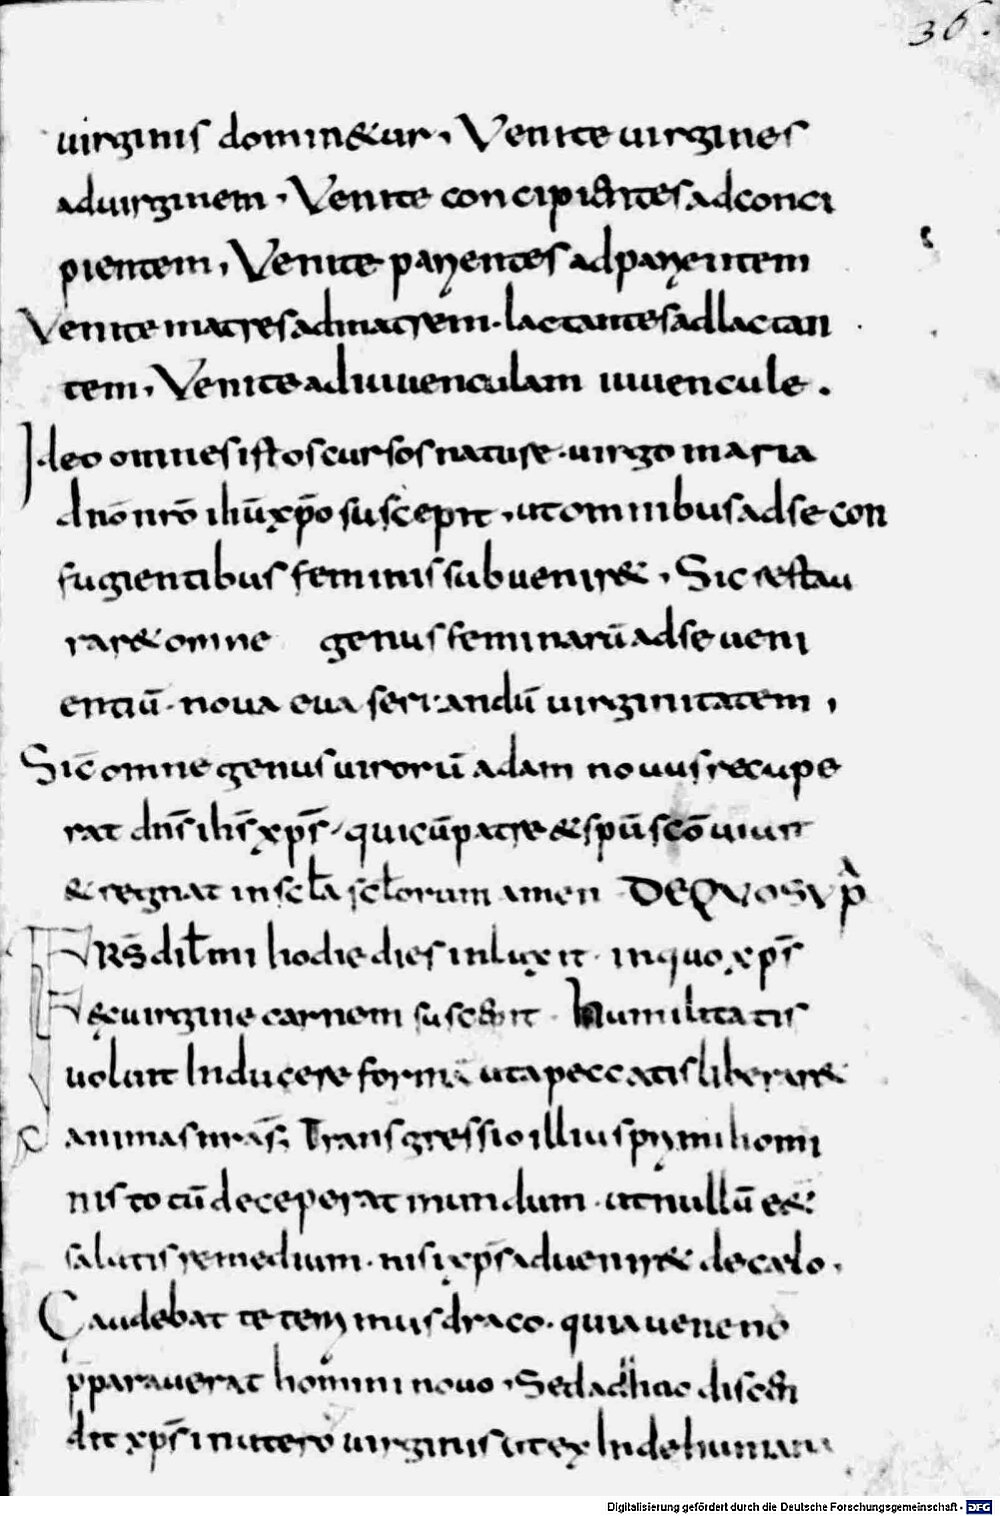 36.
uirginis domin&ur, Venite uirgines
aduirginem, Venite concipientes adconci
pientem, Venite parentes adparentem
Venite matres admatrem. lactantes adlactan
tem, Venite adiuuenculam iuuencule.
Ideo omnes istos cursos nature. uirgo maria
dnō nrō ihū xp̄o suscepit, utomnibus adse con
fugientibus feminis subuenir&, Sic restau
rar& omne genus feminarū adse ueni
entiū. noua eua seruandū uirginitatem,
Sic omne genus uirorū adam nouus recupe
rat dn̄s ih̄s xp̄s, quicū patre & sp̄u scō uiuit
& regnat in scła scłorum amen DE QUO SUP̄
FRS̄ diłmi hodie dies inluxit. inquo xp̄s
ex uirgine carnem suscepit. humilitatis
uoluit Inducere formā uta peccatis liberar&
animas nrās; Transgressio illius primi homi
nis totū deceperat mundum. ut nullū e&
salutis remedium. nisi xp̄s aduenir& de caelo,
Gaudebat teterrimus draco. quia ueneno
p̄parauerat homini novo, Sed adhuc discen
dit xp̄s in utero uirginis utex Inde humana